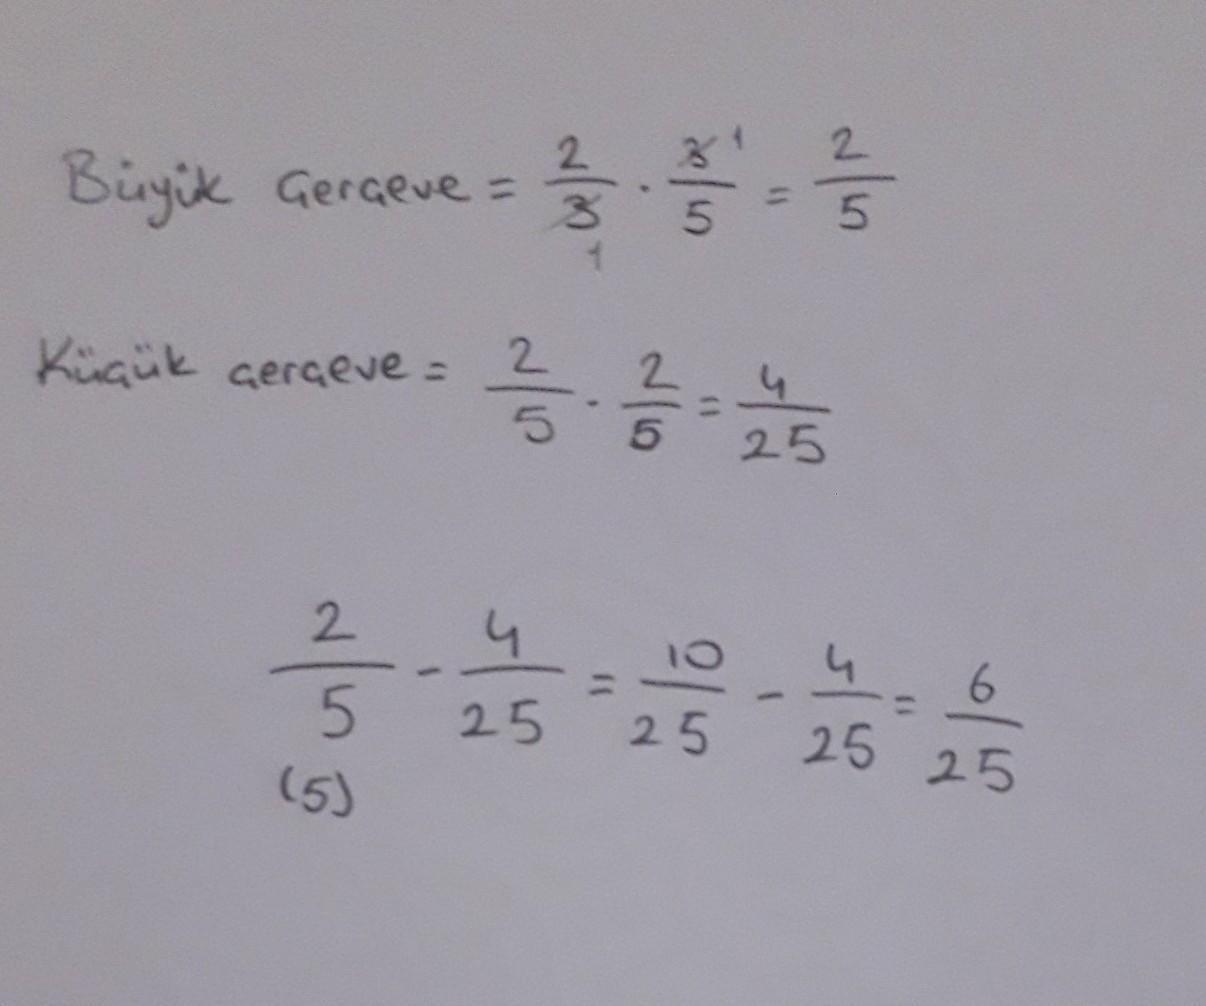 Büyük Çerçeve = 2/3 . 3/5 = 2/5
1 1
Küçük çerçeve = 2/5 . 2/5 = 4/25
2/5 - 4/25 = 10/25 - 4/25 = 6/25
(5)